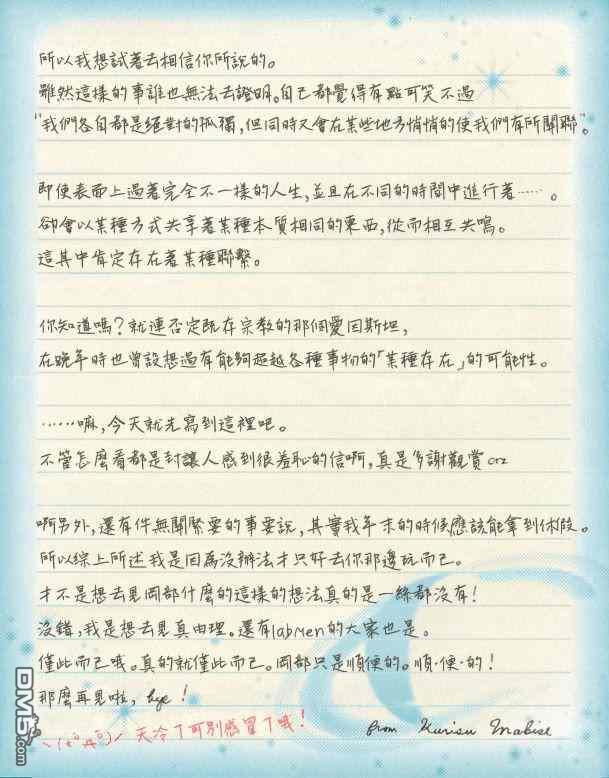 所以我想試著去相信你所說的。
雖然這樣的事誰也無法去證明。自己都覺得有點可笑不過
"我們各自都是絕對的孤獨，但同時又會在某些地方悄悄的使我們有所關聯"。
即使表面上過著完全不一樣的人生，並且在不同的時間中進行著……。
卻會以某種方式共享著某種本質相同的東西，從而相互共鳴。
這其中肯定存在著某種聯繫。
你知道嗎？就連否定既存宗教的那個愛因斯坦，
在晚年時也曾設想過有能夠超越各種事物的「某種存在」的可能性。
……嘛，今天就先寫到這裡吧。
不管怎麼看都是封讓人感到很羞恥的信啊，真是多謝觀賞orz
啊另外，還有件無關緊要的事要說，其實我年末的時候應該能拿到休假。
所以綜上所述我是因為沒辦法才只好去你那邊玩而已。
才不是想去見岡部什麼的這樣的想法真的是一絲都沒有！
沒錯，我是想去見真由理。還有labmen的大家也是。
僅此而已哦。真的就僅此而已。岡部只是順便的。順·便·的！
那麼再見啦，bye！
天冷了可別感冒了哦！
from Kurisu Makise
DM5.com